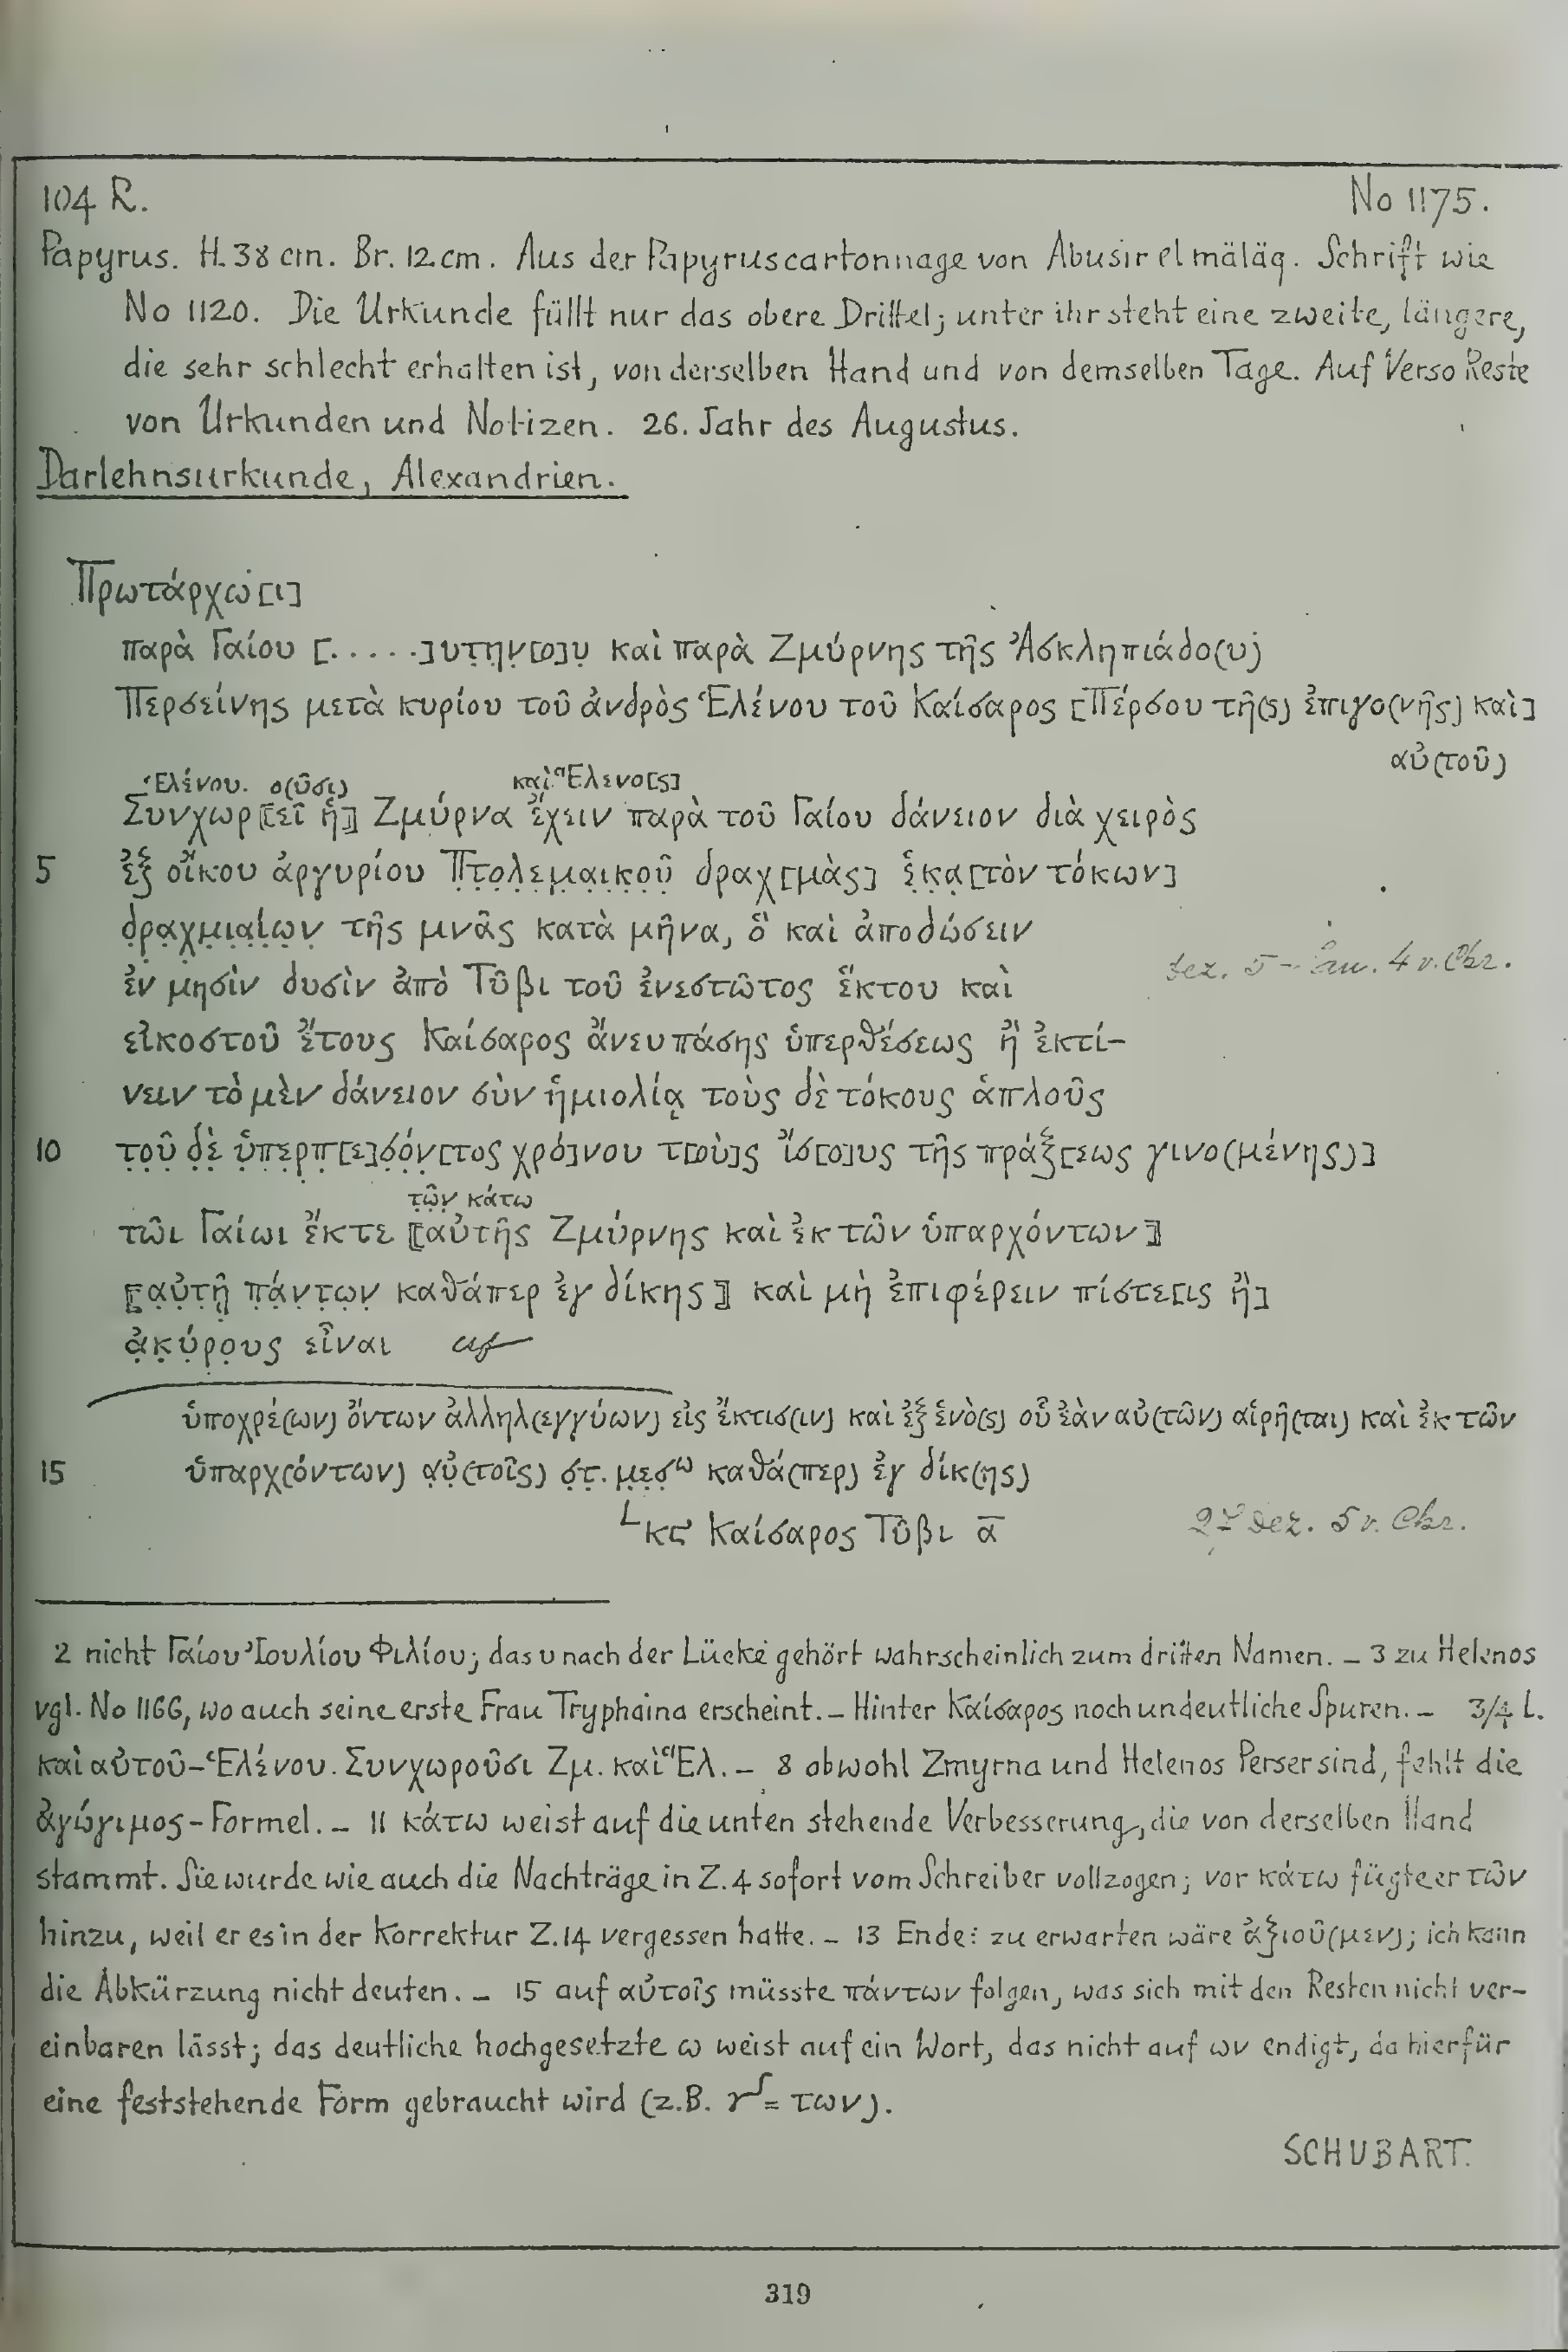 104 R. No 1175.
Papyrus. H. 38 cm. Br. 12 cm. Aus der Papyruscartonnage von Abusir el mäläq. Schrift wie
No 1120. Die Urkunde füllt nur das obere Drittel; unter ihr steht eine zweite, längere,
die sehr schlecht erhalten ist, von derselben Hand und von demselben Tage. Auf Verso Reste
von Urkunden und Notizen. 26. Jahr des Augustus.
Darlehnsurkunde, Alexandrien.
Πρωτάρχω[ι]
παρὰ Γαίου [. . . . .]υτ̣η̣ν̣[ο]υ̣ καὶ παρὰ Ζμύρνης τῆς Ἀσκληπιάδο(υ)
Περσείνης μετὰ κυρίου τοῦ ἀνδρὸς Ἑλένου τοῦ Καίσαρος [Πέρσου τῆ(ς) ἐπιγο(νῆς) καὶ]
αὐ(τοῦ)
Ἑλένου. ο(ῦσι) καὶ Ἕλενο[ς]
Συνχωρ⟦εῖ ἡ⟧ Ζμύρνα ἔχειν παρὰ τοῦ Γαίου δάνειον διὰ χειρὸς
5 ἐξ οἴκου ἀργυρίου Π̣τ̣ο̣λ̣ε̣μ̣α̣ι̣κ̣ο̣ῦ̣ δραχ[μὰς] ἑ̣κ̣α̣[τὸν τόκων]
δ̣ρ̣α̣χ̣μ̣ι̣α̣ί̣ω̣ν̣ τῆς μνᾶς κατὰ μῆνα, ὃ καὶ ἀποδώσειν
ἐν μησὶν δυσὶν ἀπὸ Τῦβι τοῦ ἐνεστῶτος ἕκτου καὶ
Dez. 5 - Jan. 4 v. Chr.
εἰκοστοῦ ἔτους Καίσαρος ἄνευ πάσης ὑπερθέσεως ἢ ἐκτί-
νειν τὸ μὲν δάνειον σὺν ἡμιολίᾳ τοὺς δὲ τόκους ἁπλοῦς
10 τ̣ο̣ῦ̣ δ̣ὲ̣ ὑ̣π̣ε̣ρ̣π̣[ε]σ̣ό̣ν̣[τος χρό]νου τ[οὺ]ς ἴσ[ο]υς τῆς πράξ[εως γινο(μένης)]
τ̣ῶ̣ν̣ κάτω
τῶι Γαίωι ἔκτε ⟦αὐτῆς Ζμύρνης καὶ ἐκ τῶν ὑπαρχόντων⟧
⟦α̣ὐ̣τ̣ῇ̣ π̣ά̣ν̣τ̣ω̣ν̣ καθάπερ ἐγ δίκης⟧ καὶ μὴ ἐπιφέρειν πίστε[ις ἢ]
ἀ̣κ̣ύ̣ρ̣ο̣υς εἶναι
ὑποχρέ(ων) ὄντων ἀλληλ(εγγύων) εἰς ἔκτισ(ιν) καὶ ἐξ ἑνὸ(ς) οὗ ἐὰν αὐ(τῶν) αἱρῆ(ται) καὶ ἐκ τῶν
15 ὑπαρχ(όντων) α̣ὐ̣(τοῖς) σ̣τ̣. μ̣ε̣σ̣ω καθά(περ) ἐγ δίκ(ης)
L κϛ Καίσαρος Τῦβι α̅
27 Dez. 5 v. Chr.
2 nicht Γαίου Ἰουλίου Φιλίου; das υ nach der Lücke gehört wahrscheinlich zum dritten Namen. – 3 zu Helenos
vgl. No 1166, wo auch seine erste Frau Tryphaina erscheint. – Hinter Καίσαρος noch undeutliche Spuren. – 3/4 l.
καὶ αὐτοῦ–Ἑλένου. Συνχωροῦσι Ζμ. καὶ Ἕλ. – 8 obwohl Zmyrna und Helenos Perser sind, fehlt die
ἀγώγιμος-Formel. – 11 κάτω weist auf die unten stehende Verbesserung, die von derselben Hand
stammt. Sie wurde wie auch die Nachträge in Z. 4 sofort vom Schreiber vollzogen; vor κάτω fügte er τῶν
hinzu, weil er es in der Korrektur Z. 14 vergessen hatte. – 13 Ende: zu erwarten wäre ἀξιοῦ(μεν); ich kann
die Abkürzung nicht deuten. – 15 auf αὐτοῖς müsste πάντων folgen, was sich mit den Resten nicht ver-
einbaren lässt; das deutliche hochgesetzte ω weist auf ein Wort, das nicht auf ων endigt, da hierfür
eine feststehende Form gebraucht wird (z.B. = των).
SCHUBART.
319